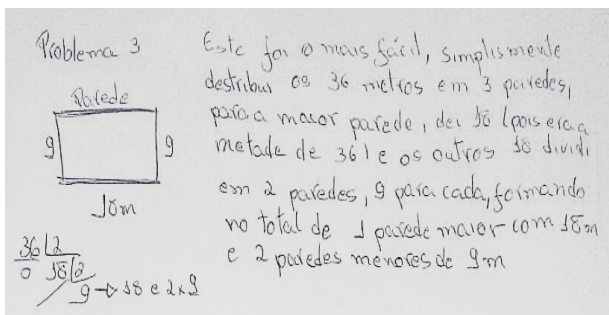 Problema 3
Parede
9
9
18m
36 2
0 18 2
9 → 18 e 2x9
Este foi o mais fácil, simplismente
destribui os 36 metros em 3 paredes,
para a maior parede, dei 18 (pois era a
metade de 36) e os outros 18 dividi
em 2 paredes, 9 para cada, formando
no total de 1 parede maior com 18m
e 2 paredes menores de 9m